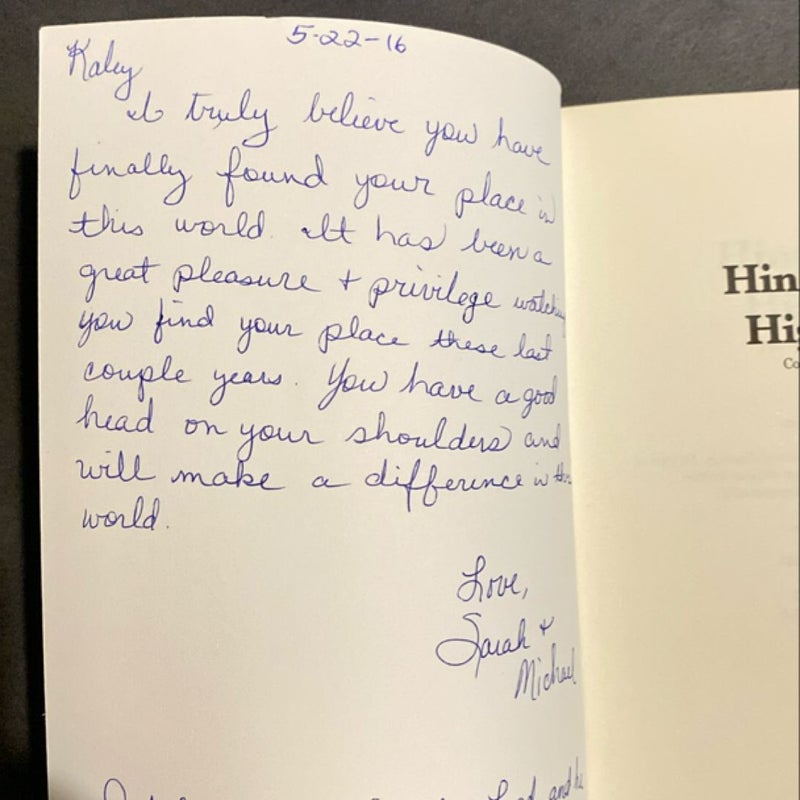 5-22-16
Kaley
I truly believe you have
finally found your place in
this world. It has been a
great pleasure + privilege watching
you find your place these last
couple years. You have a good
head on your shoulders and
will make a difference in this
world.
Love,
Sarah +
Michael
and he
Hin
Hig
Co